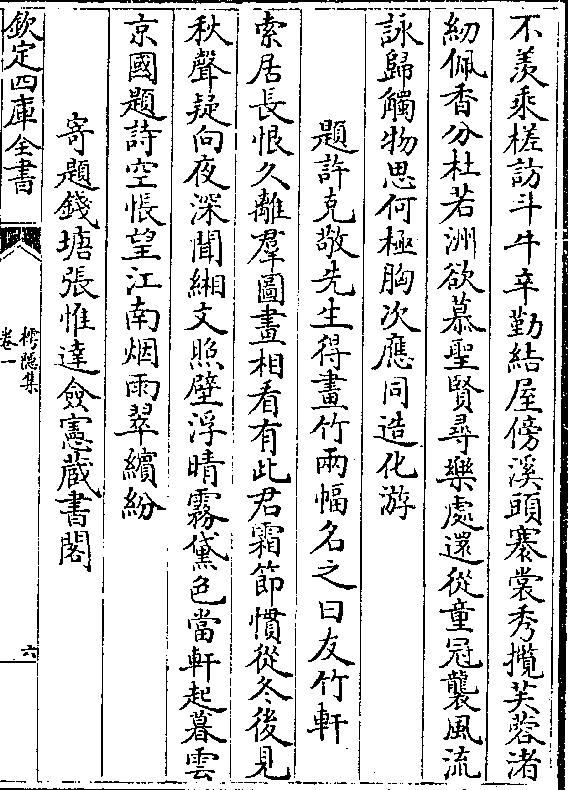 不羨乘槎訪斗牛辛勤結屋傍溪頭褰裳秀攬芙蓉渚
紉佩香分杜若洲欲慕聖賢尋樂處還從童冠襲風流
詠歸觸物思何極胸次應同造化游
題許克敬先生得畫竹兩幅名之曰友竹軒
索居長恨久離羣圖畫相看有此君霜節慣從冬後見
秋聲疑向夜深聞緗文照壁浮晴霧黛色當軒起暮雲
京國題詩空悵望江南烟雨翠繽紛
寄題錢塘張惟達僉憲蔵書閣
欽定四庫全書
樗隱集
卷一
六